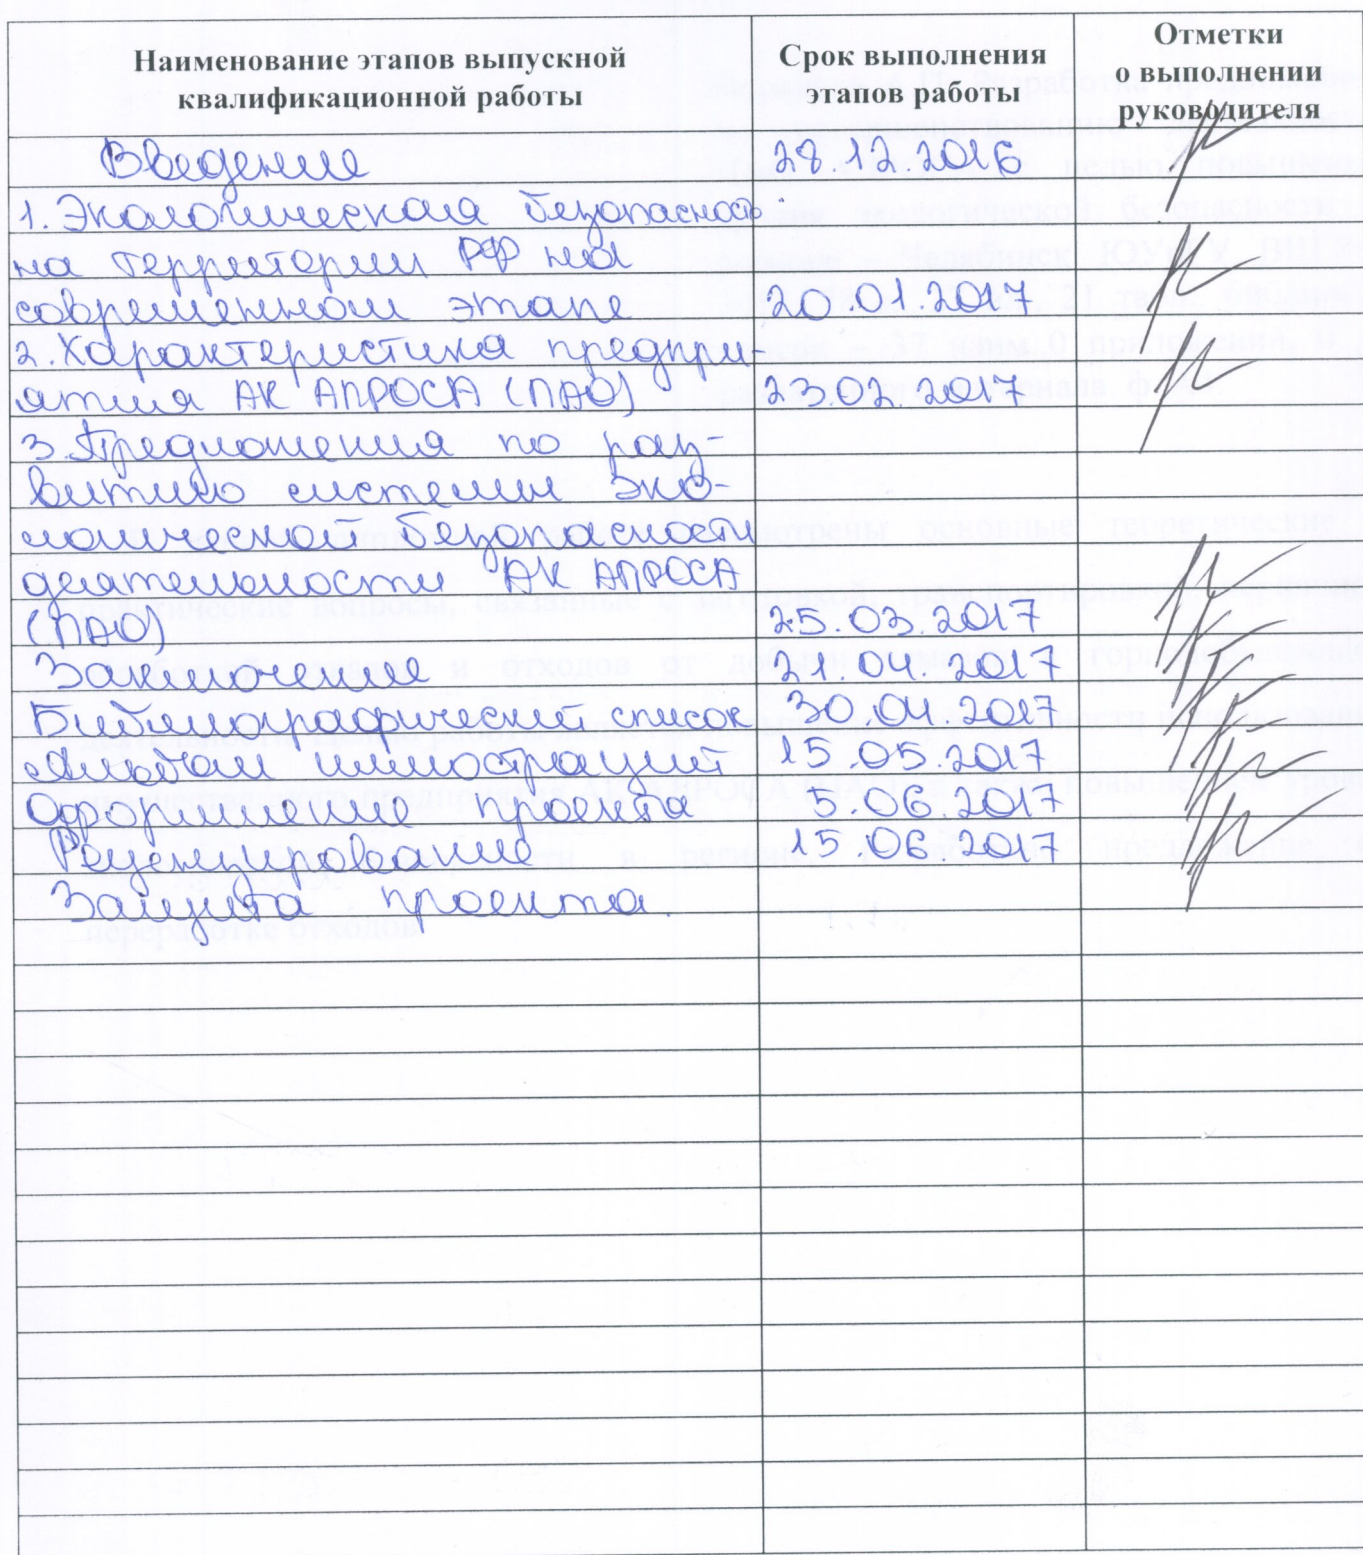 Наименование этапов выпускной квалификационной работы
Срок выполнения этапов работы
Отметки о выполнении руководителя
Введение 28.12.2016
1. Экологическая безопасность
на территории РФ на
современном этапе 20.01.2017
2. Характеристика предпри
ятия АК АЛРОСА (ПАО) 23.02.2017
3. Предложения по раз-
витию системы эко-
логической безопасности
деятельности АК АЛРОСА
(ПАО) 25.03.2017
Заключение 21.04.2017
Библиографический список 30.04.2017
Альбом иллюстраций 15.05.2017
Оформление проекта 5.06.2017
Рецензирование 15.06.2017
Защита проекта.